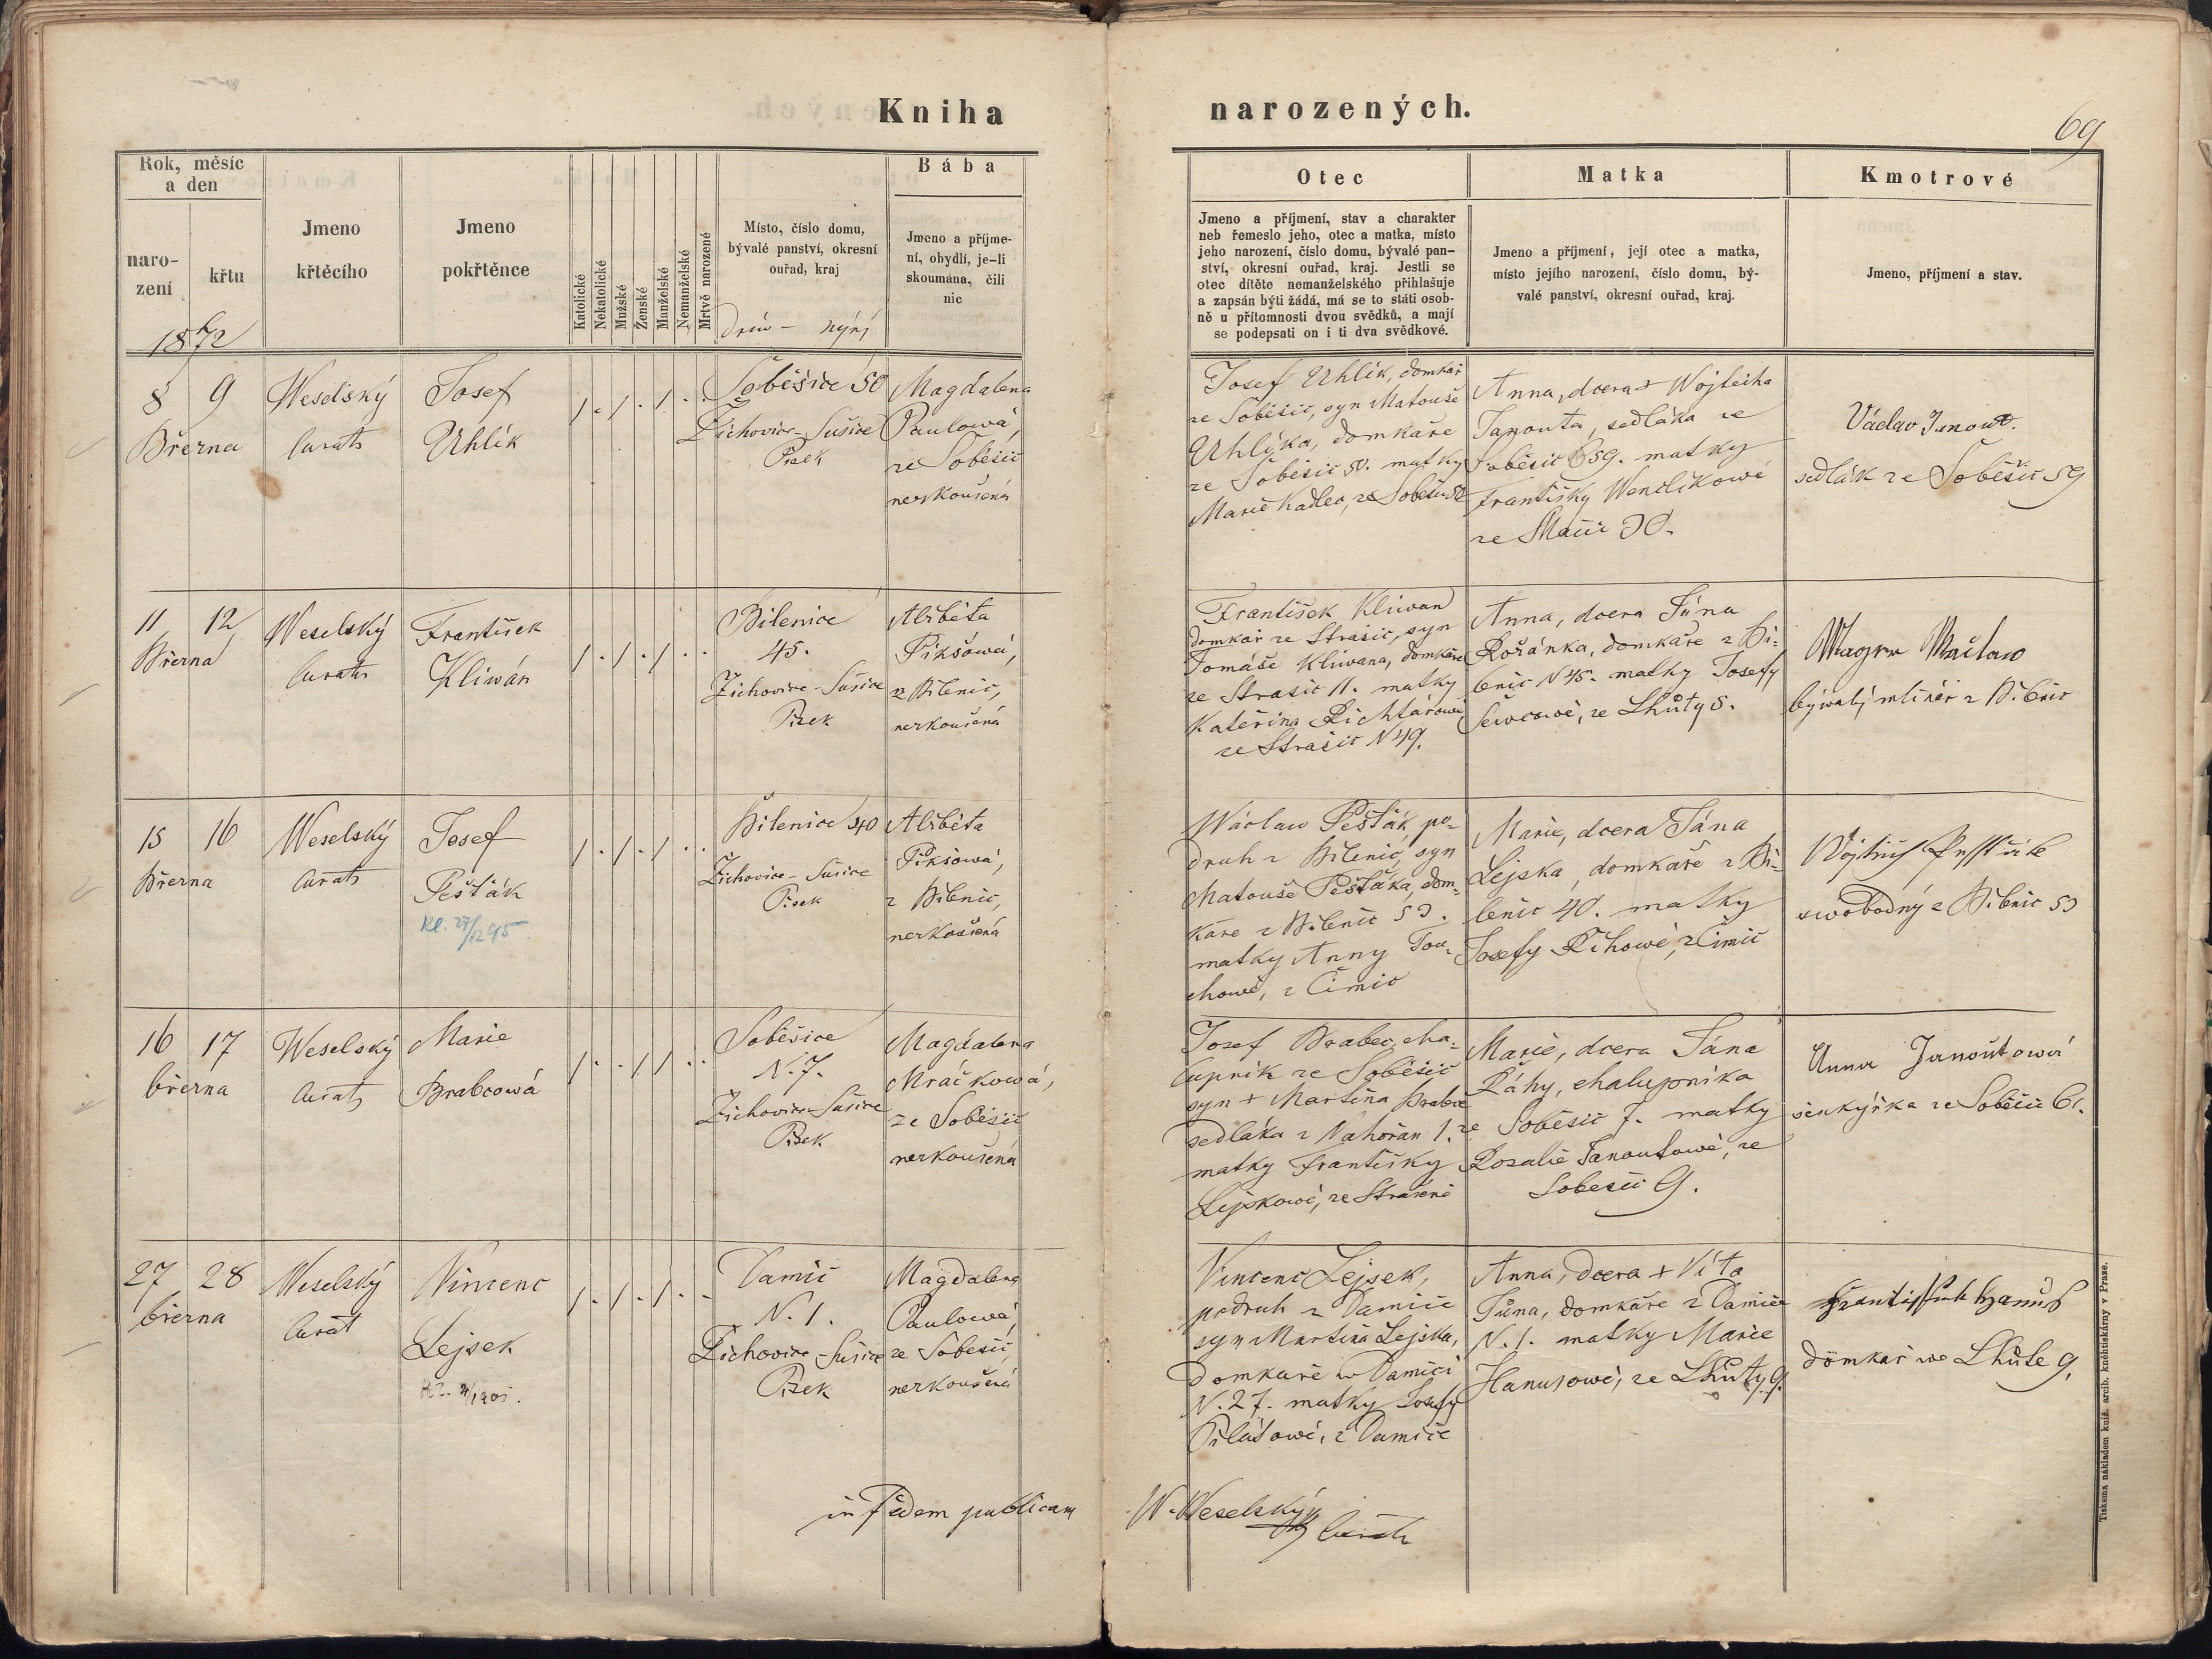 Kniha
narozených.
69
Rok, měsíc
a den
naro-
zení
křtu
1872
Jmeno
křtěcího
Jmeno
pokřtěnce
Katolické
Nekatolické
Mužské
Ženské
Manželské
Nemanželské
Mrtvě narozené
Místo, číslo domu,
bývalé panství, okresní
ouřad, kraj
dríw – nýní
Bába
Jmeno a příjme-
ní, obydlí, je-li
skoumána, čili
nic
Otec
Jmeno a příjmení, stav a charakter
neb řemeslo jeho, otec a matka, místo
jeho narození, číslo domu, bývalé pan-
ství, okresní ouřad, kraj. Jestli se
otec dítěte nemanželského přihlašuje
a zapsán býti žádá, má se to státi osob-
ně u přítomnosti dvou svědků, a mají
se podepsati on i ti dva svědkové.
Matka
Jmeno a příjmení, její otec a matka,
místo jejího narození, číslo domu, bý-
valé panství, okresní ouřad, kraj.
Kmotrové
Jmeno, příjmení a stav.
8 9
Března
Weselský
Curat
Josef
Uhlík
Soběšice 50
Žichovice - Sušice
Písek
Magdalena
Paulowá,
ze Soběšic
nezkoušená
Josef Uhlík, domkář
ze Soběšic, syn Matouše
Uhlíka, domkáře
ze Soběšic 50. matky
Marie Kadlec, ze Soběšic 52
Anna, dcera + Wojtěcha
Janouta, sedláka ze
Soběšic 59. matky
Františky Wenclíkowé
ze Mačic
Václav Janout.
sedlák ze Soběšic 59
11 12
Března
Weselský
Curat
František
Kliwán
Bilenice
45.
Žichovice - Sušice
Písek
Alžběta
Pikšowá,
z Bilenic,
nezkoušená
František Kliwan
domkář ze Strašic, syn
Tomáše Kliwana, domkáře
ze Strašic 11. matky
Kateřina Richtářowé
ze Strašic N 49.
Anna, dcera Jána
Rožánka, domkáře z Bi-
lenic N 45. matky Josefy
Šewcowé, ze Lhůty 5.
Wagner Waclaw
býwalý mlinář z Bilenic
15 16
Března
Weselský
Curat
Josef
Pešták
Bilenice 40
Žichovice - Sušice
Písek
Alžběta
Pikšowá,
z Bilenic,
nezkoušená
Wáclaw Pešták, po-
druh z Bilenic, syn
Matouše Peštáka, dom-
káře z Bilenic 53.
matky Anny Tou-
chowé, z Čimic
Marie, dcera Jána
Lejska, domkáře z Bi-
lenic 40. matky
Josefy Říhowé, z Čimic
swobodný z Bilenic 53
16 17
března
Weselský
Curat
Marie
Brabcowá
Soběšice
N. 7.
Žichovice - Sušice
Písek
Magdalena
Mráčkowá,
ze Soběšic
nezkoušená
Josef Brabec, cha-
lupník ze Soběšic
syn + Martina Brabce
sedláka z Nahořan 1.
matky Františky
Lejskowé, ze Strašic
Marie, dcera Jána
Ráhy, chalupníka
ze Soběšic 7. matky
Rosalie Janoutowé, ze
Soběšic 9.
Anna Janoutowá
šenkýřka ze Soběšic 61.
27 28
března
Weselský
Curat
Vincenc
Lejsek
Damíč
N. 1.
Žichovice - Sušice
Písek
Magdalena
Paulowá,
ze Soběšic,
nezkoušená
Vincenc Lejsek,
podruh z Damíče
syn Martina Lejska,
domkáře w Damíči
N. 27. matky Josefy
Pilátowé, z Damíče
Anna, dcera + Víta
Jůna, domkáře z Damíče
N. 1. matky Marie
Hanusowé, ze Lhůty 9.
Frantischek Hanus
domkář we Lhůtě 9.
in fidem publicam
W. Weselský
Curat
Tiskema nákladem kníž. arcib. knihtiskárny v Praze.